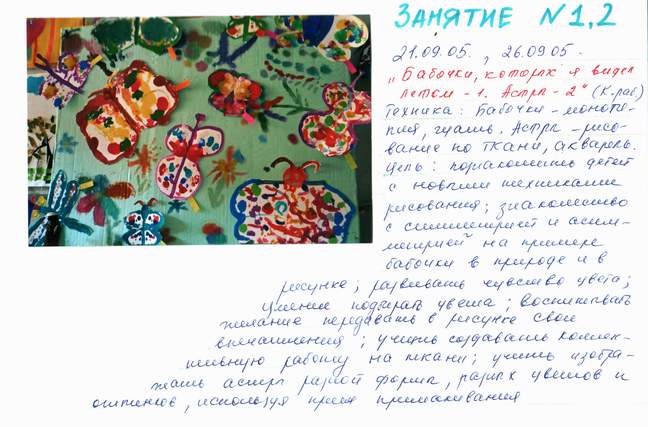 ЗАНЯТИЕ N 1,2
21.09.05. , 26.09.05.
„Бабочки, которых я видел
летом - 1. Астры - 2" (К. раб)
Техника: Бабочки - моноти-
пия, гуашь. Астры - рисо-
вание по ткани, акварель.
Цель: познакомить детей
с новыми техниками
рисования; знакомство
с симметрией и асим-
метрией на примере
бабочки в природе и в
рисунке; развивать чувство цвета;
умение подбирать цвета; воспитывать
желание передавать в рисунке свои
впечатления; учить создавать коллек-
тивную работу на ткани; учить изобра-
жать астры разной формы, разных цветов и
оттенков, используя прием примакивания